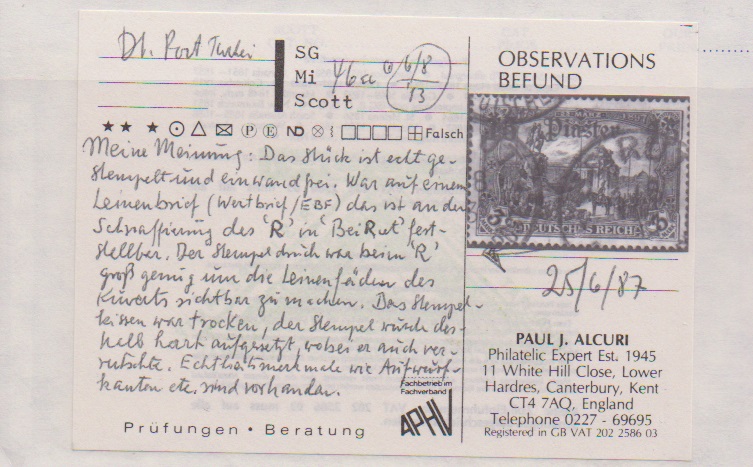 Dt. Post Türkei
SG
Mi 46a 6/8
'13
Scott
OBSERVATIONS
BEFUND
P E ND Falsch
Piaster
DEUTSCHES REICH
Meine Meinung: Das Stück ist echt ge-
stempelt und einwandfrei. War auf einem
Leinenbrief (Wertbrief/EBF) das ist an der
Schraffierung des 'R' in 'BeiRut' fest-
stellbar. Der Stempeldruck war beim 'R'
groß genug um die Leinenfäden des
Kuverts sichtbar zu machen. Das Stempel-
kissen war trocken, der Stempel wurde des-
halb hart aufgesetzt, wobei er auch ver-
rutschte. Echtheitsmerkmale wie Aufwurf-
kanten etc. sind vorhanden.
25/6/87
PAUL J. ALCURI
Philatelic Expert Est. 1945
11 White Hill Close, Lower
Hardres, Canterbury, Kent
CT4 7AQ, England
Telephone 0227 - 69695
Registered in GB VAT 202 2586 03
Fachbetrieb im
Fachverband
APHV
Prüfungen • Beratung